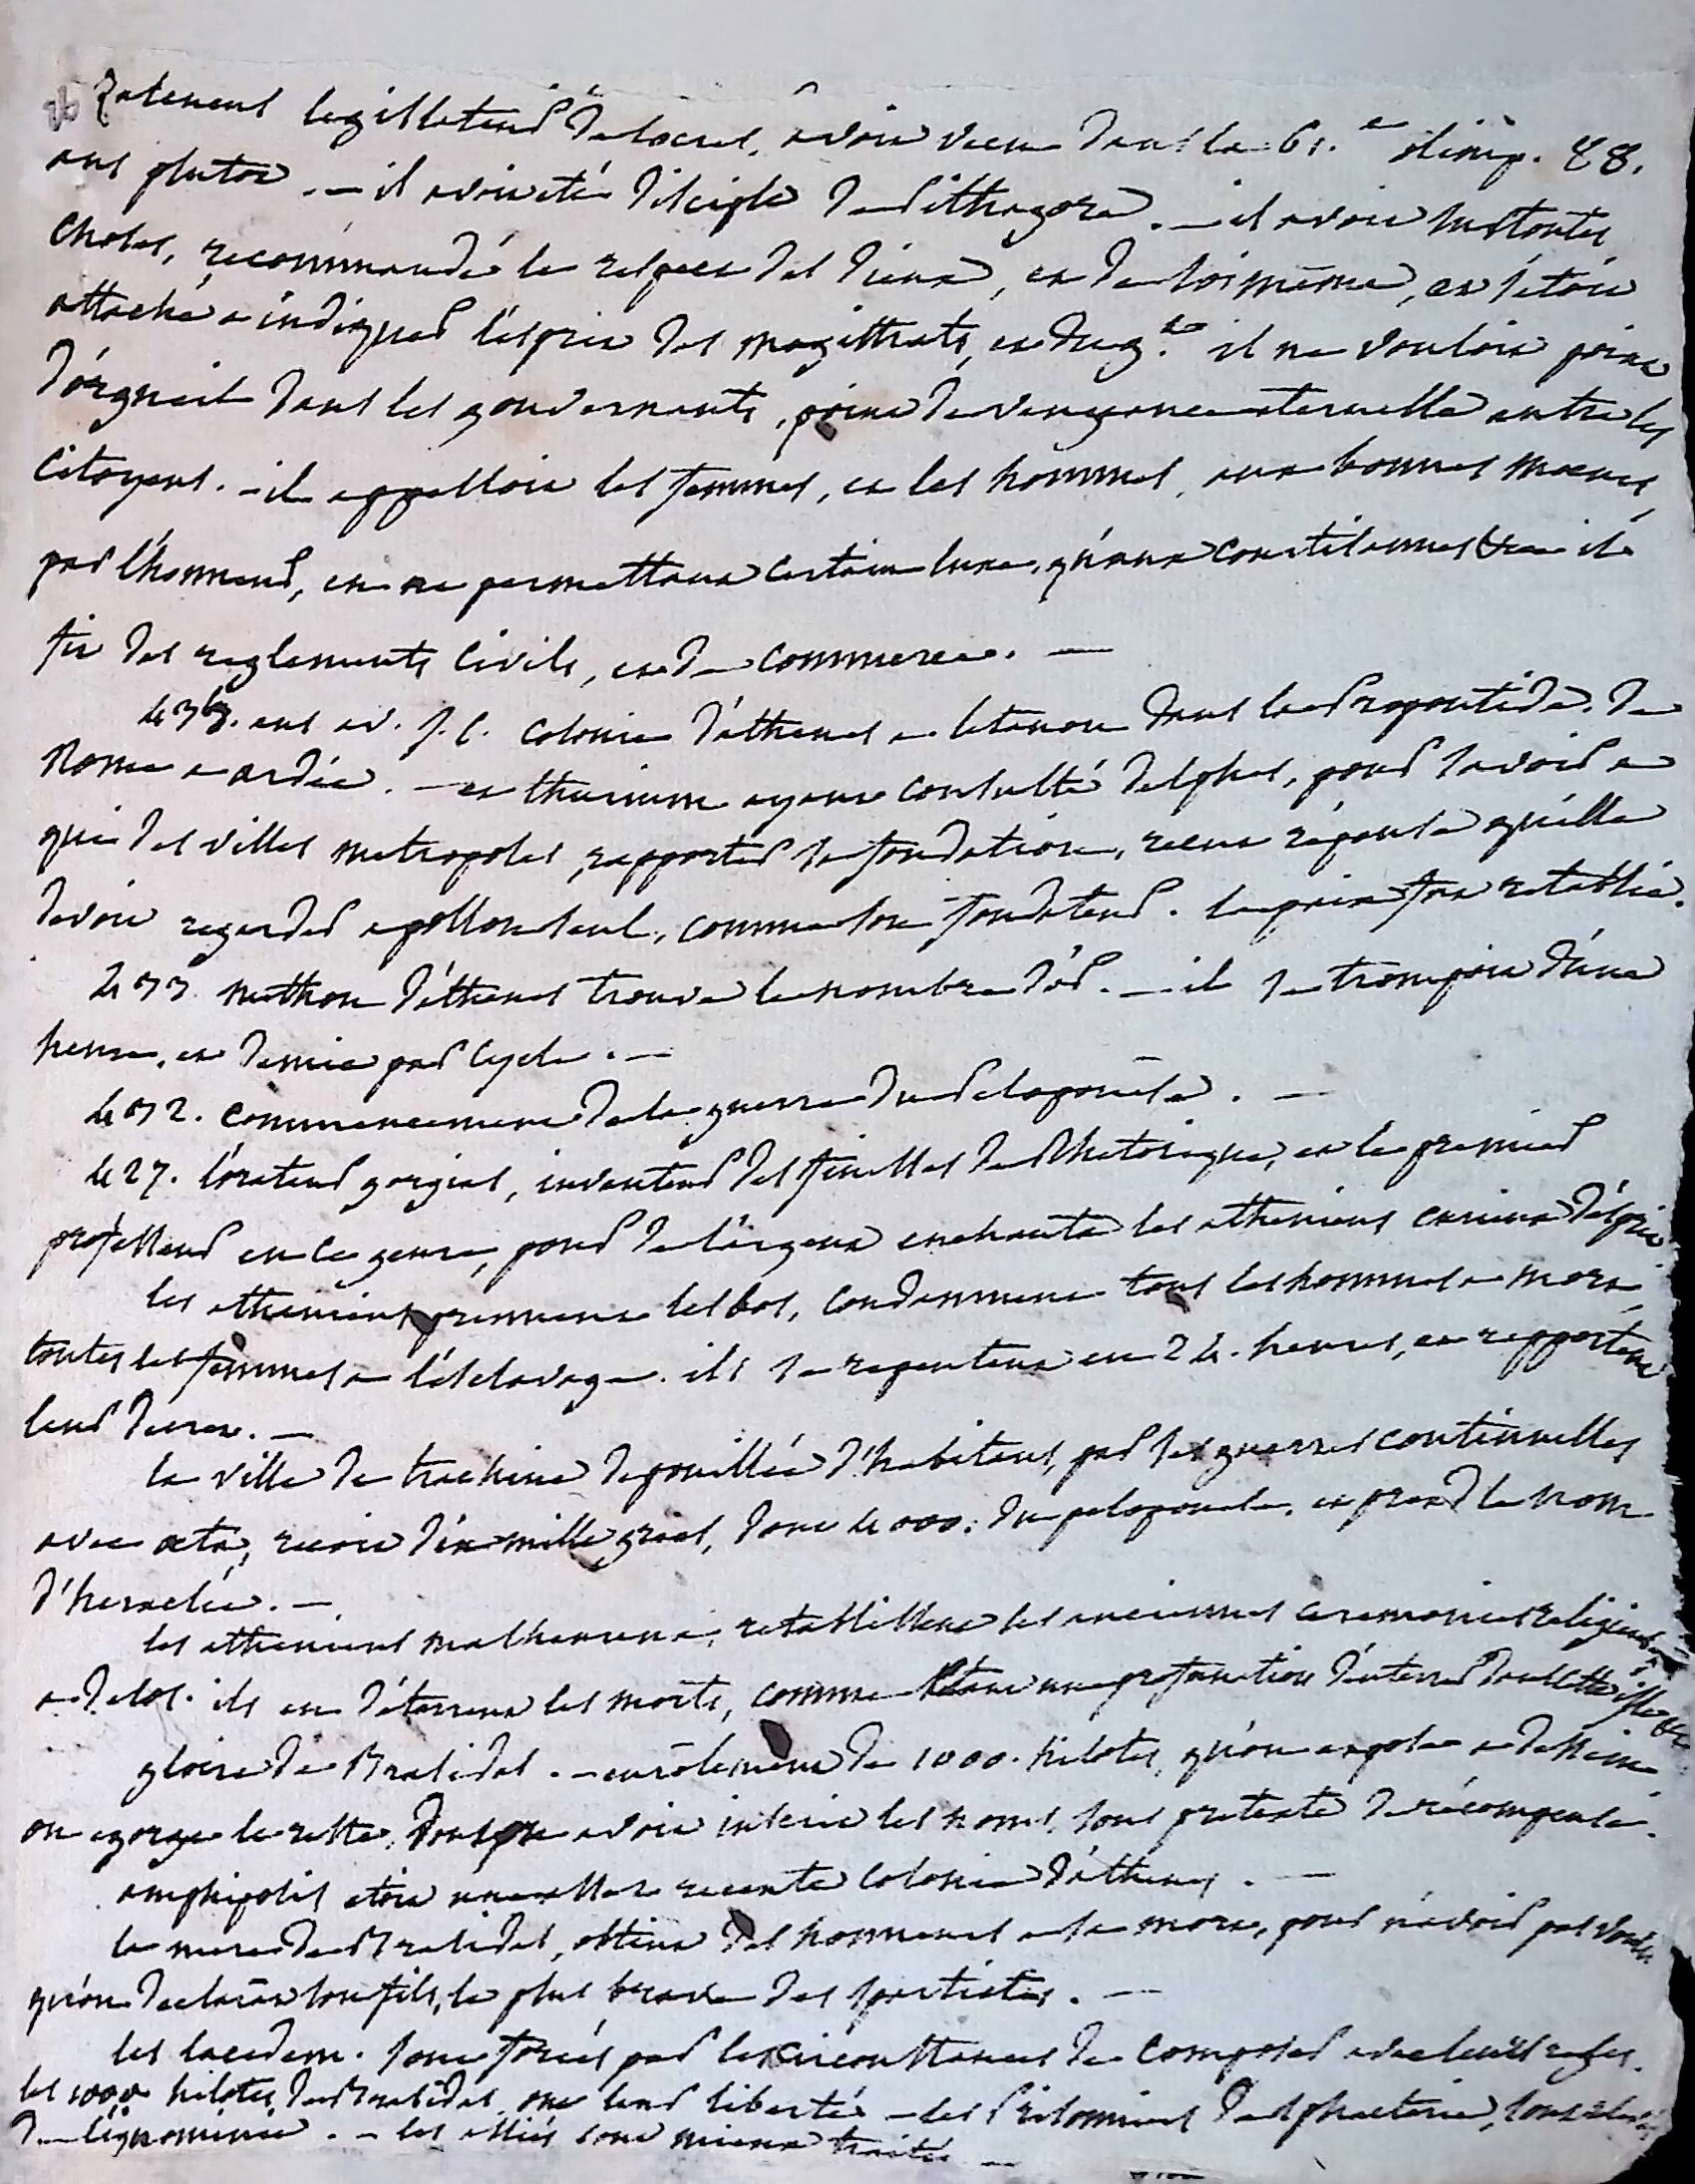 Zaleucus legislateur de locres, avoit vecu dans la 61.e olimp. 88.
ans plutot. — il avoit eté disciple de Pithagore. — il avoit sur toutes
choses, recommandé le respect des dieux, et de soi même, et s'étoit
attaché a indiquer l'esprit des magistrats, et du g.t il ne vouloit point
d'orgueil dans les gouvernants, point de vengeance eternelle entre les
citoyens. — il appelloit les femmes, et les hommes, aux bonnes moeurs,
par l'honneur, en ne permettant certain luxe, qu'aux courtisannes &c. il
fit des reglements civils, et de commerce. —
ans av. J. C. colonie d'athenes a letanon dans la Propontide. de
Rome a ardée. — et thurium ayant consulté delphes, pour savoir a
qui des villes metropoles, rapporter sa fondation, recut réponse qu'elle
devoit regarder apollon seul, comme son fondateur. la paix fut retablie.
433 methon d'athenes trouve le nombre d'or. — il se trompoit d'une
heure, et demie par cycle. —
432. commencement de la guerre du Peloponèse. —
427. l'orateur gorgias, inventeur des finesses de Rhetorique, et le premier
professeur en ce genre, pour de l'argent enchanta les atheniens curieux d'esprit
les atheniens prennent lesbos, condamnent tous les hommes a mort,
toutes les femmes a l'esclavage. ils se repentent en 24. heures, et rapportent
leur decret. —
la ville de trachine depouillée d'habitants, par ses guerres continuelles
avec oeta, recoit dix mille grecs, dont 4000. du peloponese, et prend le nom
d'heraclée. —
les atheniens malheureux, retablissent les anciennes ceremonies religieuses
a Delos. ils en déterrent les morts, comme étant une profanation d'enterrer dans cette isle &c.
gloire de Brasidas. — enrôlement de 1000. hilotes, qu'on expose a dessein,
on egorge le reste, dont on avoit inscrit les noms, sous pretexte de récompense.
amphipolis etoit une assez recente colonie d'athenes. —
la mere de Brasidas, obtint des honneurs a sa mort, pour n'avoir pas voulu
qu'on declarât son fils, le plus brave des spartiates. —
les lacedem. sont forcés par les circonstances de composer avec leurs usages.
les 1000 hilotes de Brasidas ont leur liberté — les Prisonniers de Sphacterie, sont
d'ignominie. — les alliés sont mieux traités —